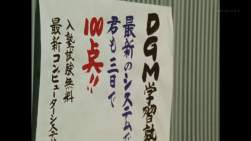 DGM学習塾
最新のシステムで
君も三日で
100点!!
入塾試験無料
最新コンピューターシステム